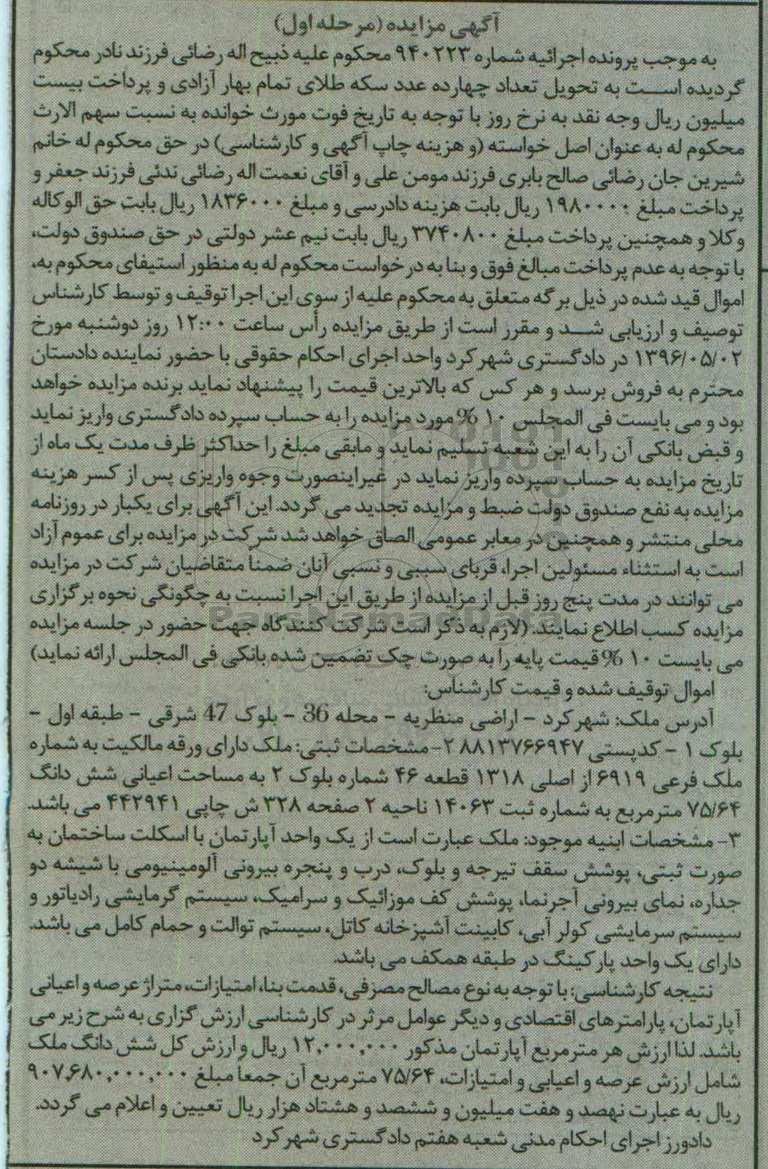 آگهی مزایده (مرحله اول)
به موجب پرونده اجرائیه شماره ۹۴۰۲۲۳ محکوم علیه ذبیح اله رضائی فرزند نادر محکوم
گردیده است به تحویل تعداد چهارده عدد سکه طلای تمام بهار آزادی و پرداخت بیست
میلیون ریال وجه نقد به نرخ روز با توجه به تاریخ فوت مورث خوانده به نسبت سهم الارث
محکوم له به عنوان اصل خواسته (و هزینه چاپ آگهی و کارشناسی) در حق محکوم له خانم
شیرین جان رضائی صالح بابری فرزند مومن علی و آقای نعمت اله رضائی ندئی فرزند جعفر و
پرداخت مبلغ ۱۹۸۰۰۰۰ ریال بابت هزینه دادرسی و مبلغ ۱۸۳۶۰۰۰ ریال بابت حق الوکاله
وکلا و همچنین پرداخت مبلغ ۳۷۴۰۸۰۰ ریال بابت نیم عشر دولتی در حق صندوق دولت،
با توجه به عدم پرداخت مبالغ فوق و بنا به درخواست محکوم له به منظور استیفای محکوم به،
اموال قید شده در ذیل برگه متعلق به محکوم علیه از سوی این اجرا توقیف و توسط کارشناس
توصیف و ارزیابی شد و مقرر است از طریق مزایده رأس ساعت ۱۲:۰۰ روز دوشنبه مورخ
۱۳۹۶/۰۵/۰۲ در دادگستری شهرکرد واحد اجرای احکام حقوقی با حضور نماینده دادستان
محترم به فروش برسد و هر کس که بالاترین قیمت را پیشنهاد نماید برنده مزایده خواهد
بود و می بایست فی المجلس ۱۰ % مورد مزایده را به حساب سپرده دادگستری واریز نماید
و قبض بانکی آن را به این شعبه تسلیم نماید و مابقی مبلغ را حداکثر ظرف مدت یک ماه از
تاریخ مزایده به حساب سپرده واریز نماید در غیراینصورت وجوه واریزی پس از کسر هزینه
مزایده به نفع صندوق دولت ضبط و مزایده تجدید می گردد. این آگهی برای یکبار در روزنامه
محلی منتشر و همچنین در معابر عمومی الصاق خواهد شد شرکت در مزایده برای عموم آزاد
است به استثناء مسئولین اجرا، قربای سببی و نسبی آنان ضمناً متقاضیان شرکت در مزایده
می توانند در مدت پنج روز قبل از مزایده از طریق این اجرا نسبت به چگونگی نحوه برگزاری
مزایده کسب اطلاع نمایند. (لازم به ذکر است شرکت کنندگاه جهت حضور در جلسه مزایده
می بایست ۱۰ % قیمت پایه را به صورت چک تضمین شده بانکی فی المجلس ارائه نماید)
اموال توقیف شده و قیمت کارشناس:
آدرس ملک: شهرکرد - اراضی منظریه - محله 36 - بلوک 47 شرقی - طبقه اول -
بلوک ۱ - کدپستی ۸۸۱۳۷۶۶۹۴۷ ۲- مشخصات ثبتی: ملک دارای ورقه مالکیت به شماره
ملک فرعی ۶۹۱۹ از اصلی ۱۳۱۸ قطعه ۴۶ شماره بلوک ۲ به مساحت اعیانی شش دانگ
۷۵/۶۴ مترمربع به شماره ثبت ۱۴۰۶۳ ناحیه ۲ صفحه ۳۲۸ ش چاپی ۴۴۲۹۴۱ می باشد.
۳- مشخصات ابنیه موجود: ملک عبارت است از یک واحد آپارتمان با اسکلت ساختمان به
صورت ثبتی، پوشش سقف تیرچه و بلوک، درب و پنجره بیرونی آلومینیومی با شیشه دو
جداره، نمای بیرونی آجرنما، پوشش کف موزائیک و سرامیک، سیستم گرمایشی رادیاتور و
سیستم سرمایشی کولر آبی، کابینت آشپزخانه کاتل، سیستم توالت و حمام کامل می باشد.
دارای یک واحد پارکینگ در طبقه همکف می باشد.
نتیجه کارشناسی: با توجه به نوع مصالح مصرفی، قدمت بنا، امتیازات، متراژ عرصه و اعیانی
آپارتمان، پارامترهای اقتصادی و دیگر عوامل مرثر در کارشناسی ارزش گزاری به شرح زیر می
باشد. لذا ارزش هر مترمربع آپارتمان مذکور ۱۲,۰۰۰,۰۰۰ ریال و ارزش کل شش دانگ ملک
شامل ارزش عرصه و اعیابی و امتیازات، ۷۵/۶۴ مترمربع آن جمعاً مبلغ ۹۰۷,۶۸۰,۰۰۰,۰۰۰
ریال به عبارت نهصد و هفت میلیون و ششصد و هشتاد هزار ریال تعیین و اعلام می گردد.
دادورز اجرای احکام مدنی شعبه هفتم دادگستری شهرکرد